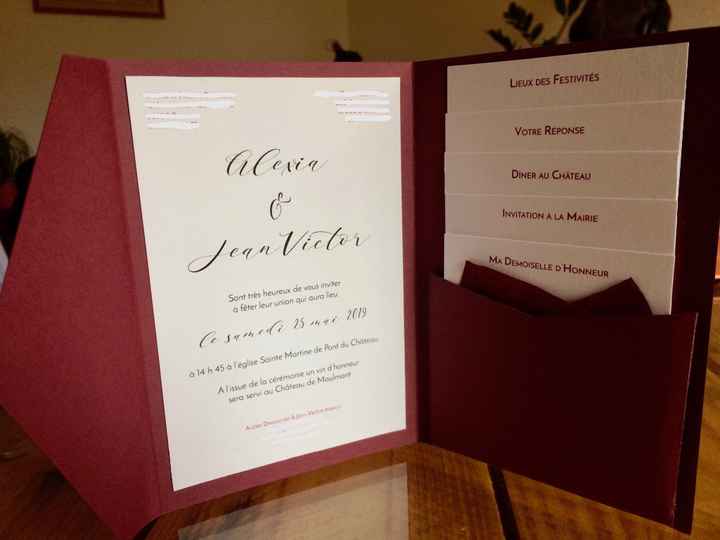 Alexia
&
Jean Victor
Sont très heureux de vous inviter
à fêter leur union qui aura lieu
le samedi 25 mai 2019
à 14 h 45 à l'église Sainte Martine de Pont du Château
A l'issue de la cérémonie un vin d'honneur
sera servi au Château de Maulmont
Lieux des Festivités
Votre Réponse
Dîner au Château
Invitation à la Mairie
Ma Demoiselle d'Honneur